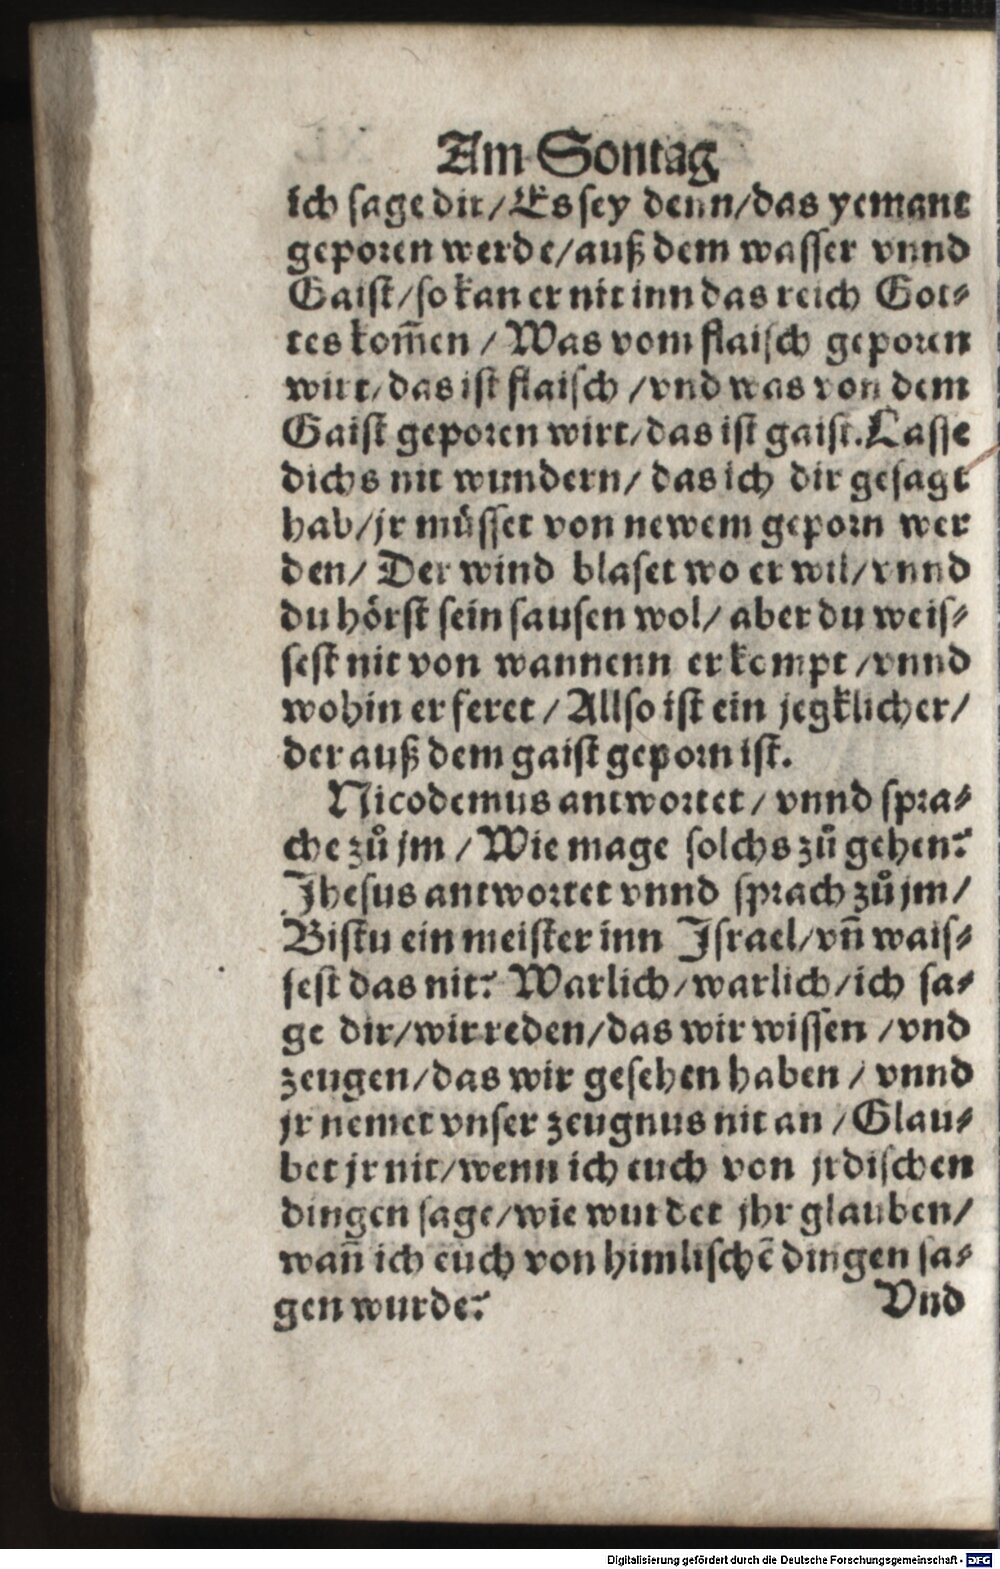 Am Sontag
ich sage dir / Es sey denn / das yemant
geporen werde / auß dem wasser vnnd
Gaist / so kan er nit inn das reich Got⸗
tes kom̃en / Was vom flaisch geporen
wirt / das ist flaisch / vnd was von dem
Gaist geporen wirt / das ist gaist. Lasse
dichs nit wundern / das ich dir gesagt
hab / jr müsset von newem geporn wer
den / Der wind blaset wo er wil / vnnd
du hörst sein sausen wol / aber du weis⸗
sest nit von wannenn er kompt / vnnd
wohin er feret / Allso ist ein jegklicher /
der auß dem gaist geporn ist.
Nicodemus antwortet / vnnd spra⸗
che zů jm / Wie mage solchs zů gehen?
Jhesus antwortet vnnd sprach zů jm /
Bistu ein meister inn Jsrael / vñ wais⸗
sest das nit? Warlich / warlich / ich sa⸗
ge dir / wir reden / das wir wissen / vnd
zeugen / das wir gesehen haben / vnnd
jr nemet vnser zeugnus nit an / Glau⸗
bet jr nit / wenn ich euch von jrdischen
dingen sage / wie wurdet jhr glauben /
wañ ich euch von himlischẽ dingen sa⸗
gen wurde?
Vnd
Digitalisierung gefördert durch die Deutsche Forschungsgemeinschaft - DFG